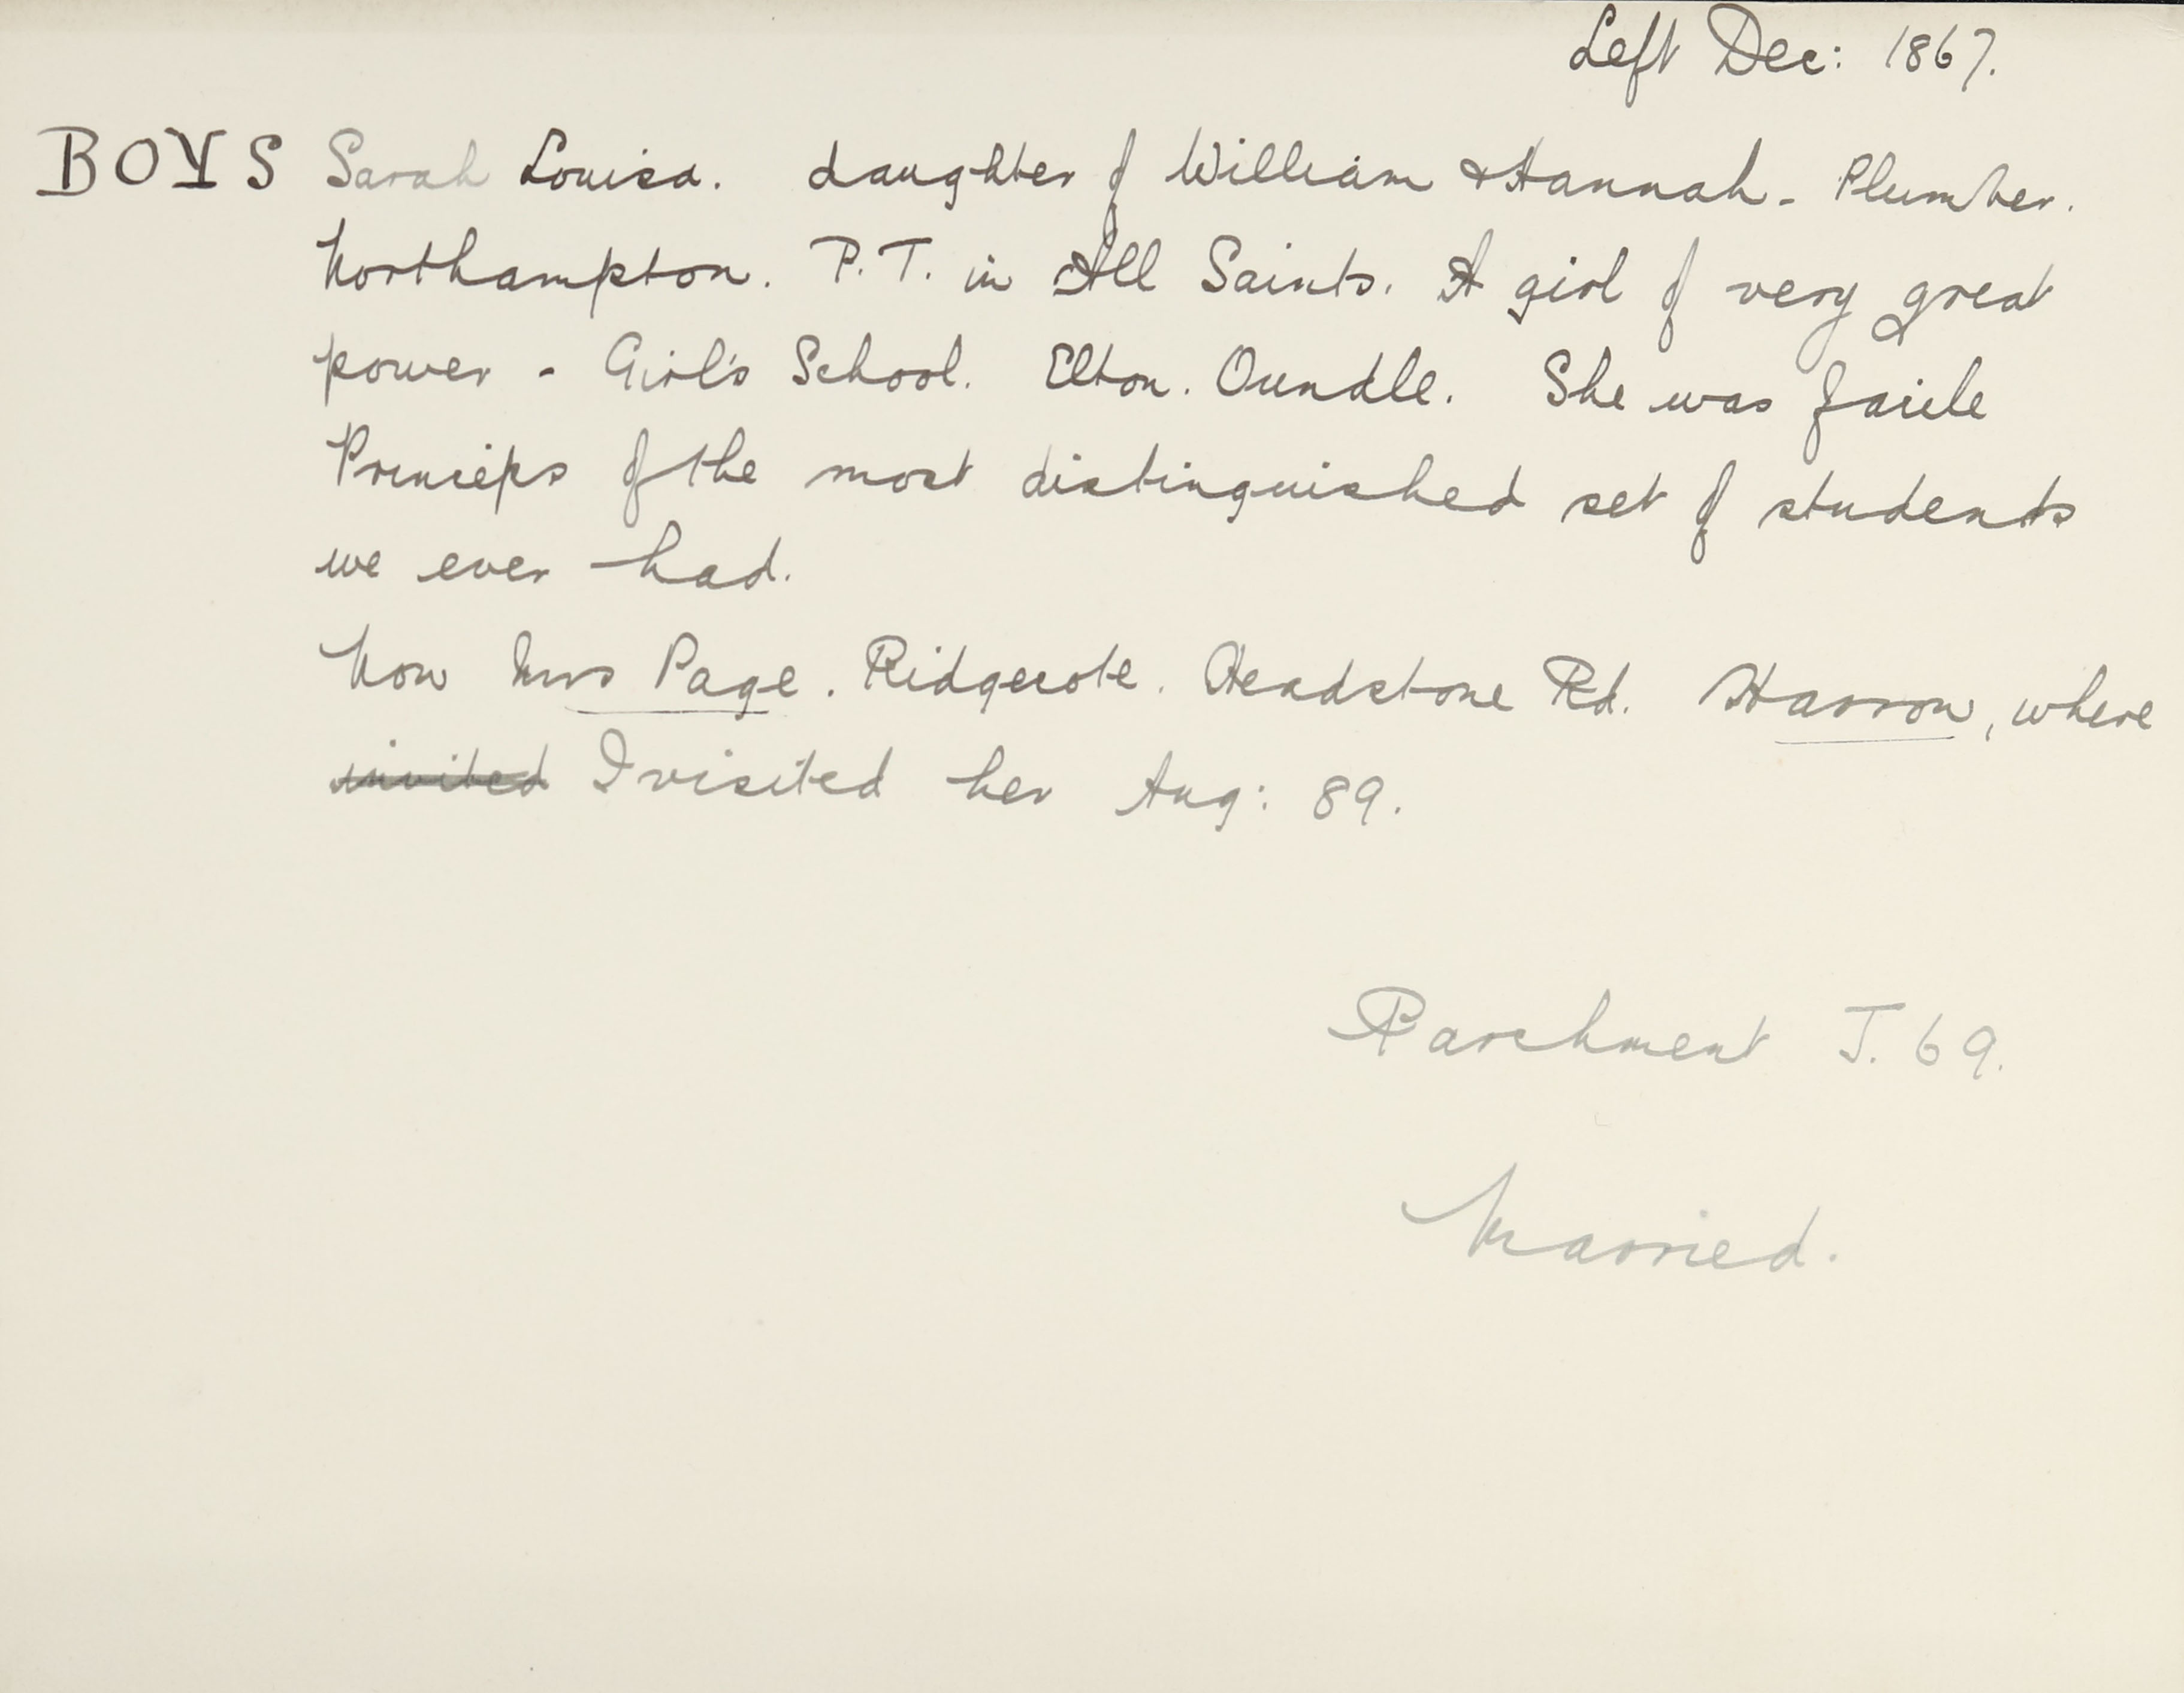 Left Dec: 1867.
BOYS Sarah Louisa. daughter of William & Hannah - Plumber.
Northampton. P.T. in All Saints. A girl of very great
power - Girl's School. Elton. Oundle. She was facile
Princeps of the most distinguished set of students
we ever had.
Now Mrs Page. Ridgecote. Headstone Rd. Harrow, where
invited I visited her Aug: 89.
Parchment J. 69.
Married.